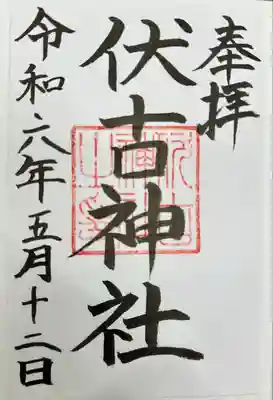 奉拝
伏古神社
令和六年五月十二日